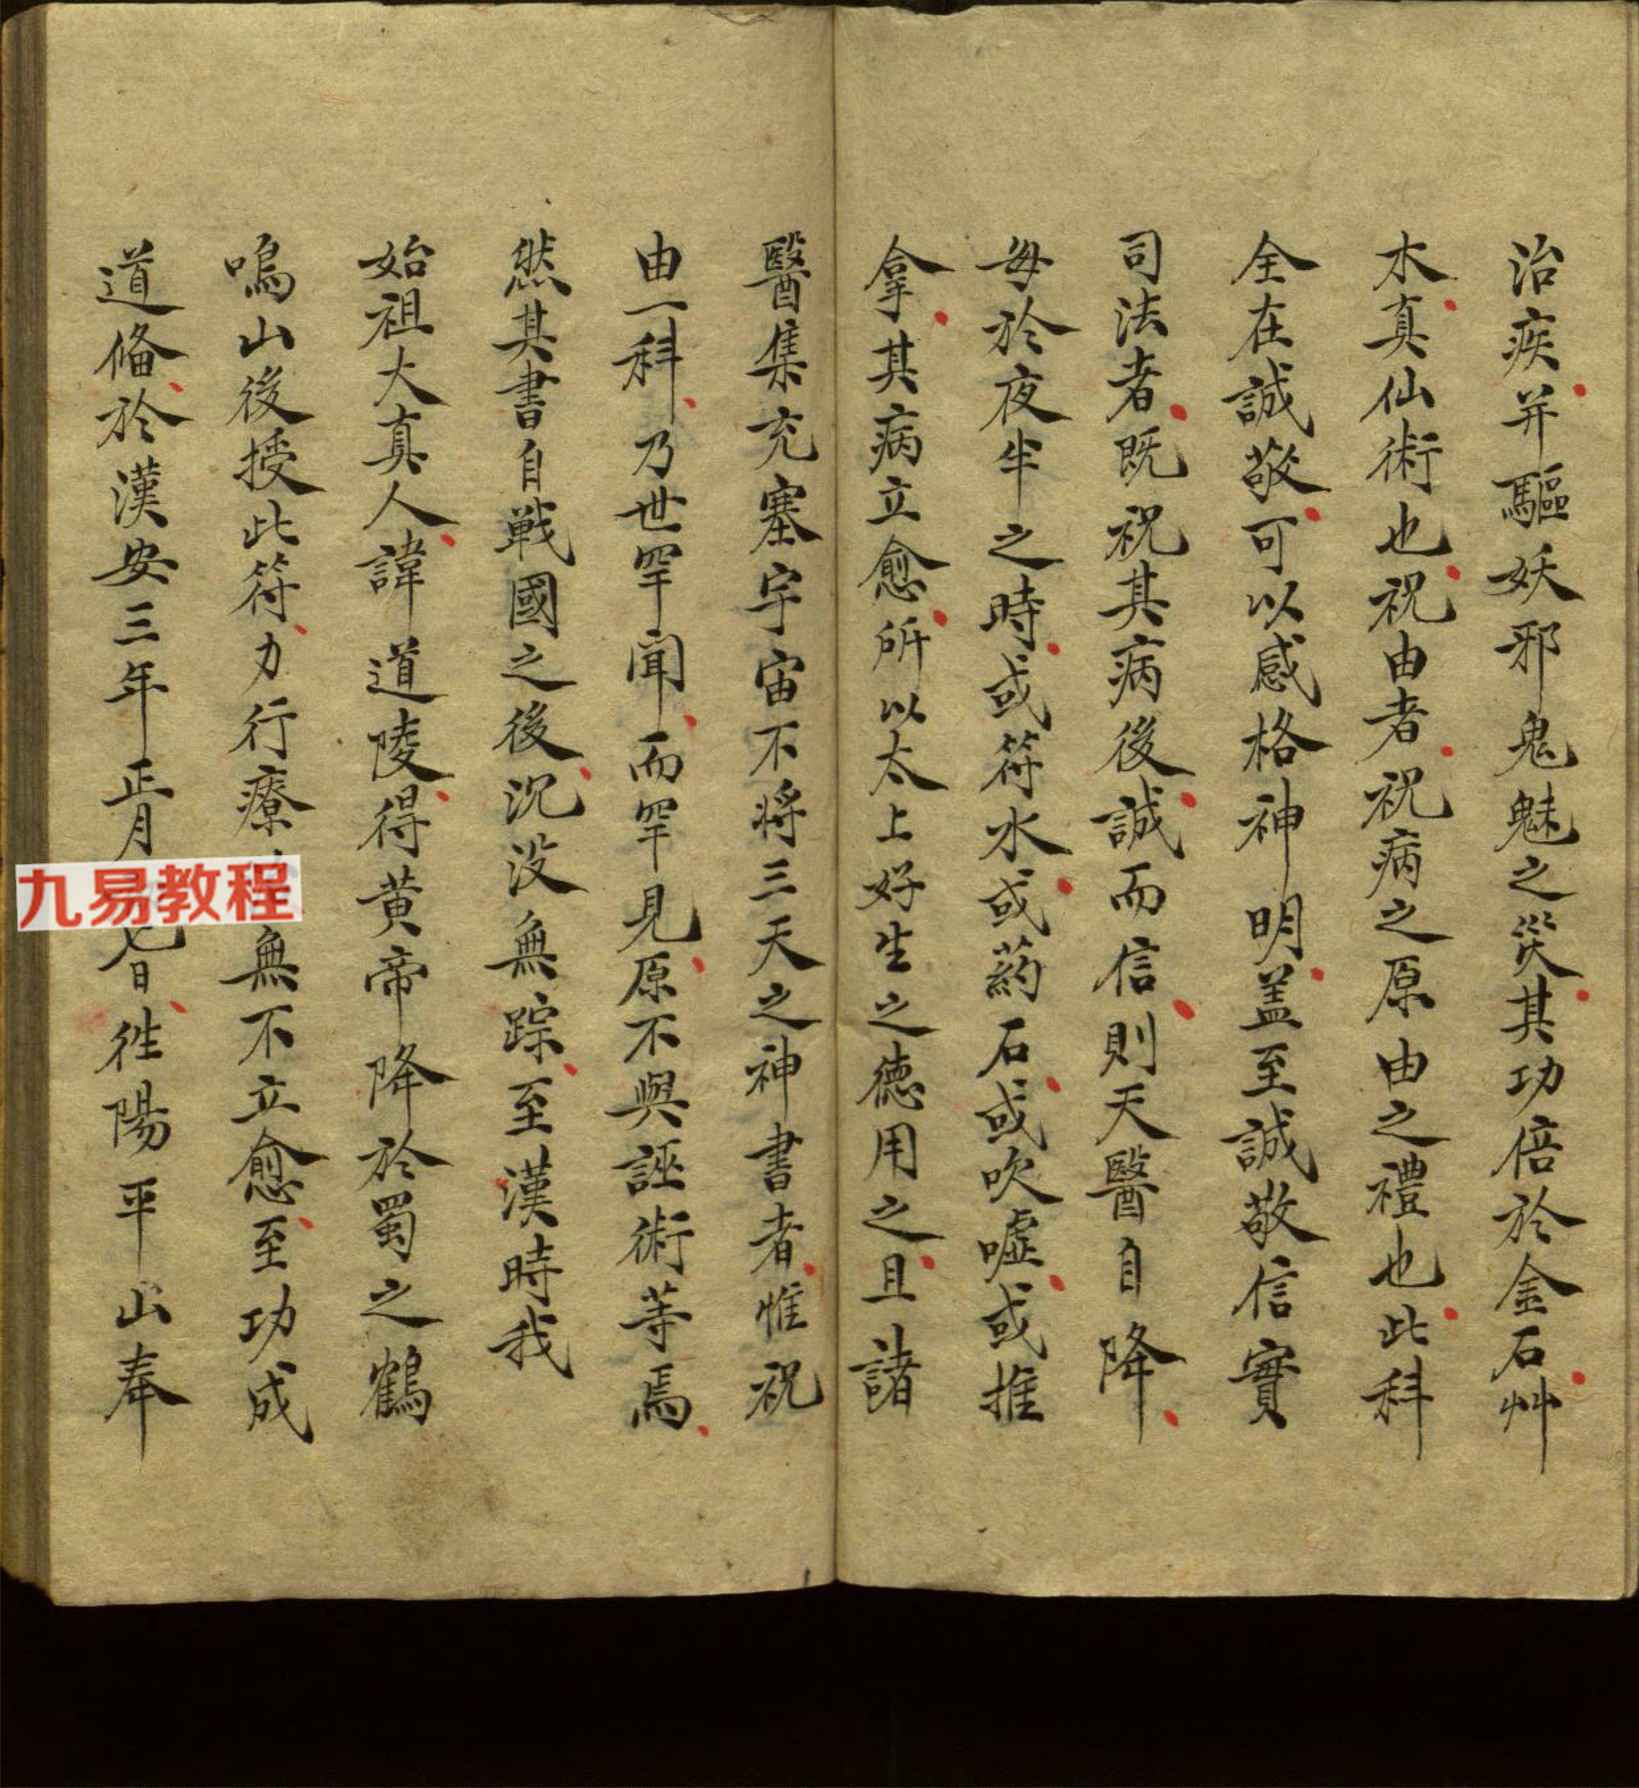 治疾并驅妖邪鬼魅之災其功倍於金石艸
木真仙術也祝由者祝病之原由之禮也此科
全在誠敬可以感格神明盖至誠敬信實
司法者既祝其病後誠而信則天醫自降
每於夜半之時或符水或药石或吹嘘或推
拿其病立愈所以太上好生之德用之且諸
醫集充塞宇宙不將三天之神書者惟祝
由一科乃世罕聞而罕見原不與誣術等焉
然其書自戰國之後沉没無踪至漢時我
始祖大真人諱道陵得黄帝降於蜀之鶴
鳴山後授此符力行療無不立愈至功成
道俻於漢安三年正月七日徃陽平山奉
九易教程